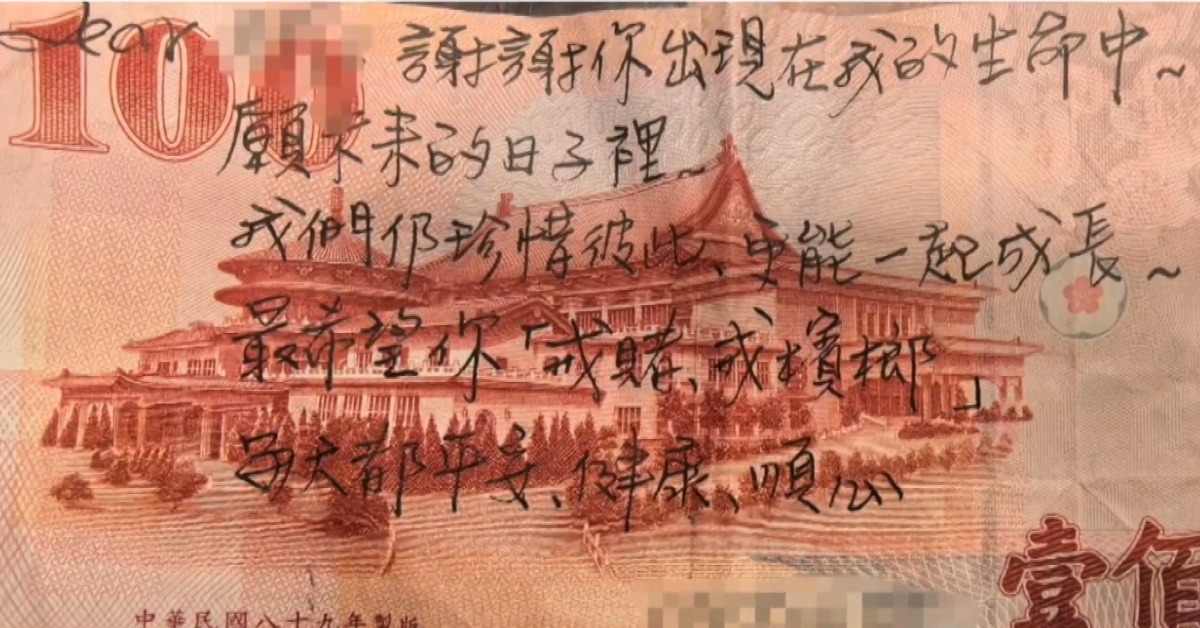 100
Dear 謝謝你出現在我的生命中~
願未來的日子裡~
我們仍珍惜彼此、更能一起成長~
最希望你「戒賭、戒檳榔」
每天都平安、健康、順心
壹佰
中華民國八十九年製版